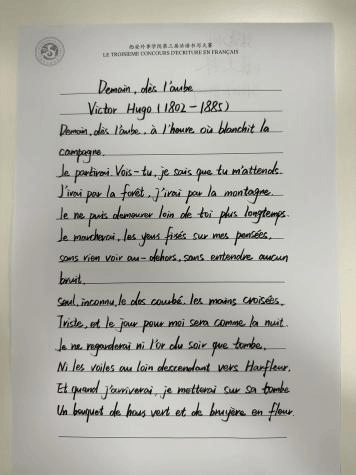 西安外事学院第三届法语书写大赛
LE TROISIEME CONCOURS D'ECRITURE EN FRANÇAIS
Demain, dès l'aube
Victor Hugo (1802-1885)
Demain, dès l'aube, à l'heure où blanchit la
campagne.
Je partirai. Vois-tu, je sais que tu m'attends.
J'irai par la forêt, j'irai par la montagne.
Je ne puis demeurer loin de toi plus longtemps.
Je marcherai, les yeux fixés sur mes pensées,
sans rien voir au-dehors, sans entendre aucun
bruit.
Seul, inconnu, le dos courbé, les mains croisées,
Triste, et le jour pour moi sera comme la nuit.
Je ne regarderai ni l'or du soir que tombe,
Ni les voiles au loin descendant vers Harfleur,
Et quand j'arriverai, je metterai sur sa tombe
Un bouquet de hous vert et de bruyère en fleur.